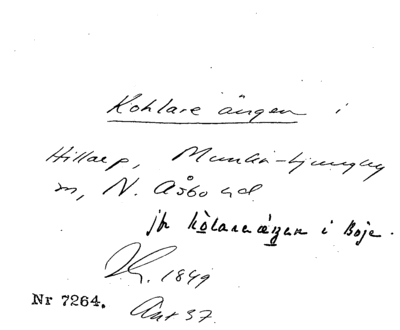 Kohlare ängen i
Hillarp, Munka-Ljungby
sn, N. Åsbo hd
jfr kòlareæ̀ŋen i Böje.
1849
Nr 7264. Ant 37